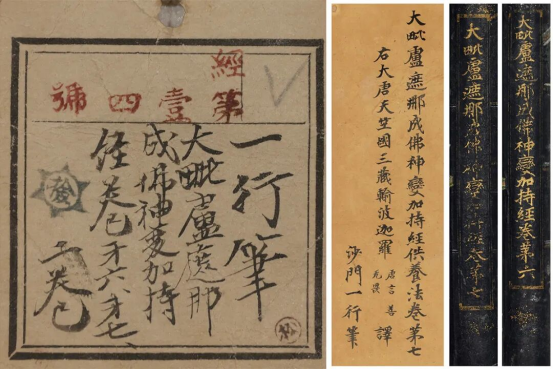 經第壹四號
一行筆
大毗盧遮那
成佛神变加持
經卷才六才七
二卷
發
大毗盧遮那成佛神變加持經供養法卷第七
右大唐天竺國三藏輸波迦羅唐言善無畏譯
沙門一行筆
大毗盧遮那成佛神變加持經卷第七
大毗盧遮那成佛神變加持經卷第六